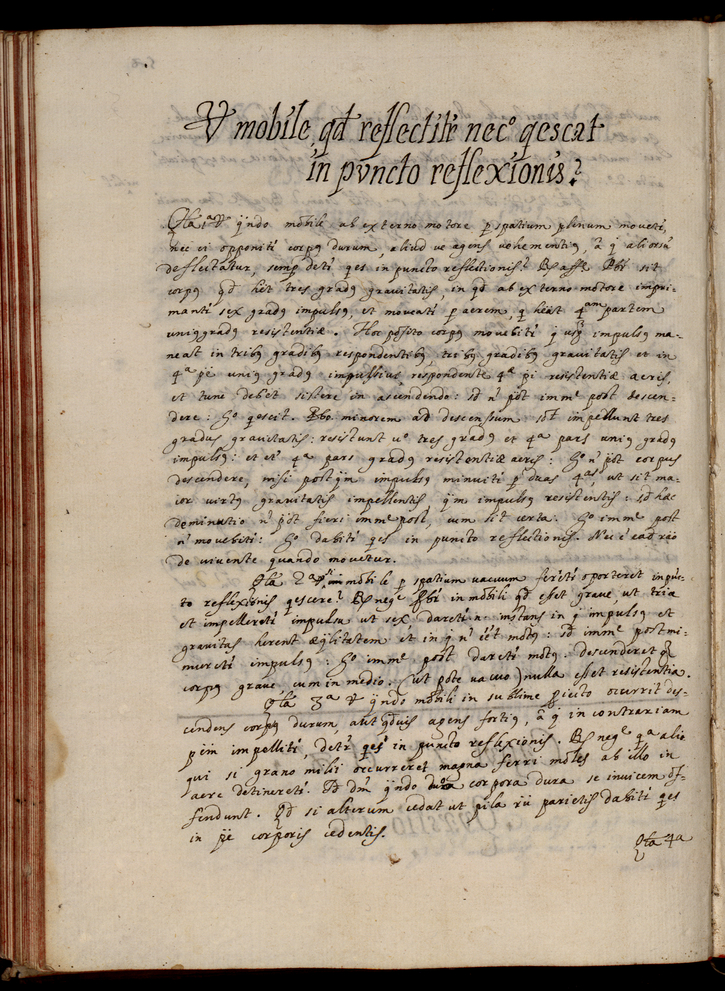 V mobile, qd reflectitr neco qescat
in pvncto reflexionis?
Qta 1a V qndo mobile ab externo motore p spatium plenum moveti,
nec ei opponiti corpq durum, aliud ve agens vehementiq, a q aliorsu
deflectatur, semp deti qes in puncto reflectionis? Rs affe. Pbr sit
corpq qd het tres gradq gravitatis, in qd ab externo motore impri-
manti sex gradq impulsq, et moveati p aerem, q heat 4am partem
uniqgradq resistentiæ. Hoc posito corpq movebiti q usq impulsq ma-
neat in tribq gradibq respondentibq tribq gradibq gravitatis et in
4a pe uniq gradq impulsivi, respondente 4a pi resistentiæ aeris,
et tunc debet sistere in ascendendo: sd n pot imme post descen-
dere: Go qescit. Pbo minorem ad descensum sot impellunt tres
gradus gravitatis: resistunt vo tres gradq et 4a pars uniq gradq
impulsq: et et 4a pars gradq resistentiæ aeris: Go n pot corpus
descendere, nisi postqm impulsq minuiti p duas 4as, ut sit ma-
ior virtq gravitatis impellentis qm impulsq resistentis: sd hæc
deminutio n pot fieri imme post, cum sit certa. Go imme post
n movebiti: Go dabiti qes in puncto reflectionis. Nec e ead rao
de vivente quando movetur.
Qta 2a V si mobile p spatium vacuum ferreti oporteret in punc-
to reflexionis qescere? Rs nege Pbr in mobili qd esset grave ut tria
et impellereti impulsu ut sex dareti n instans in q impulsq et
gravitas herent æqlitatem et in q n eet motq: sd imme post mi-
nuereti impulsq: Go imme post dareti motq. descenderet q
corpq grave cum in medio (ut pote vacuo) nulla esset resistentia.
Qta 3a V qndo mobili in sublime piecto occurrit des-
cendens corpq durum aut qduis agens fortiq, a q in contrariam
pem impelliti, detr qes in puncto reflexionis. Rs nege qa alio
qui si grano milii occurreret magna ferri moles ab illo in
aere detineretr. Id dm qndo duo corpora dura se invicem of-
fendunt. Qd si alterum cedat ut pila rii parietis dabiti qes
in pe corporis cedentis.
Qta 4a